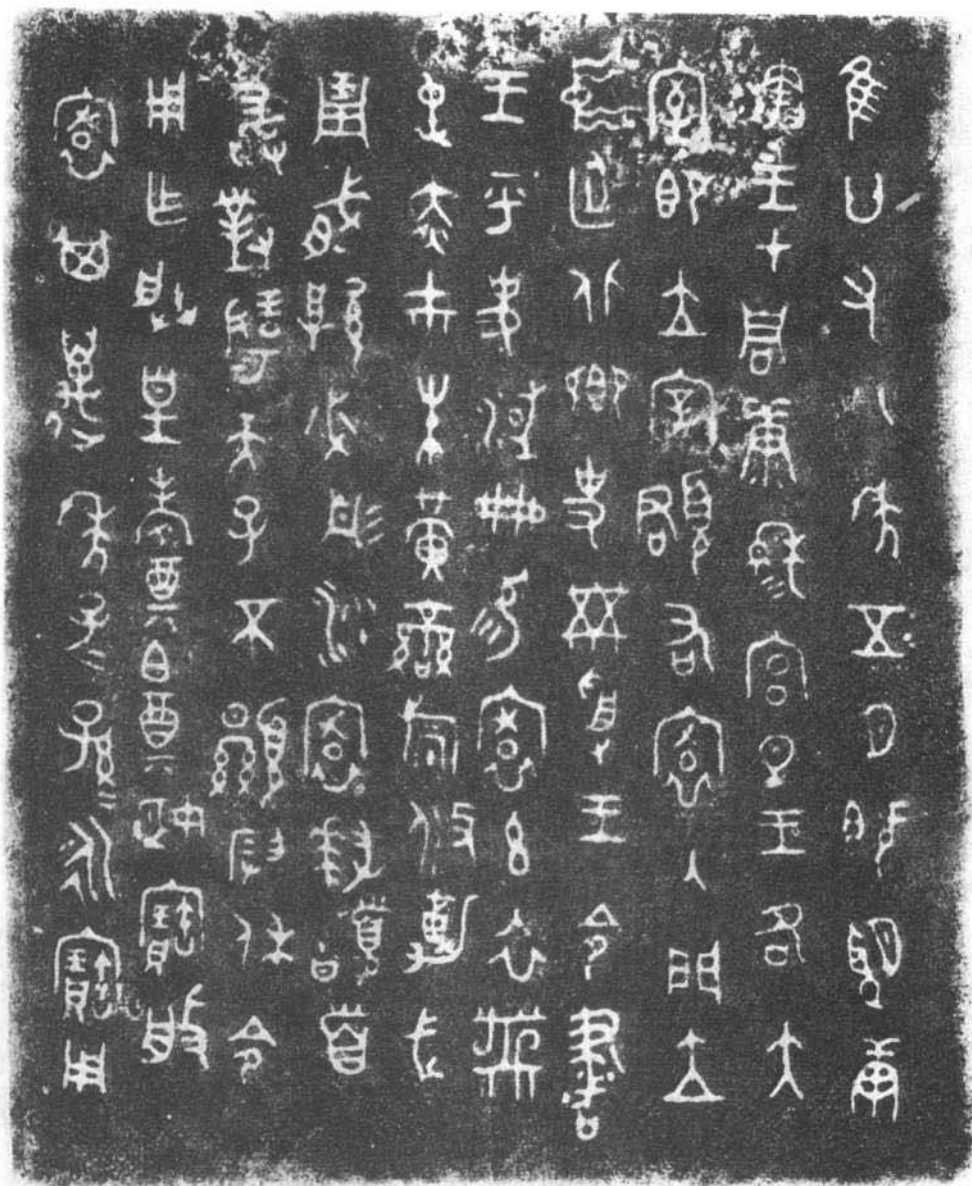 隹廿又八年五月既望庚
寅王才周康穆宮旦王各大
室即立宰頵右寰入門立
中廷北鄉史黹受王令書
王乎史淢冊易寰玄衣黹
屯赤巿朱黃䜌旂攸勒戈
琱㦰厚必彤沙寰拜𩒨首
敢對揚天子不顯叚休令
用乍朕皇考奠白奠姬寶盤
寰其萬年子=孫=永寶用